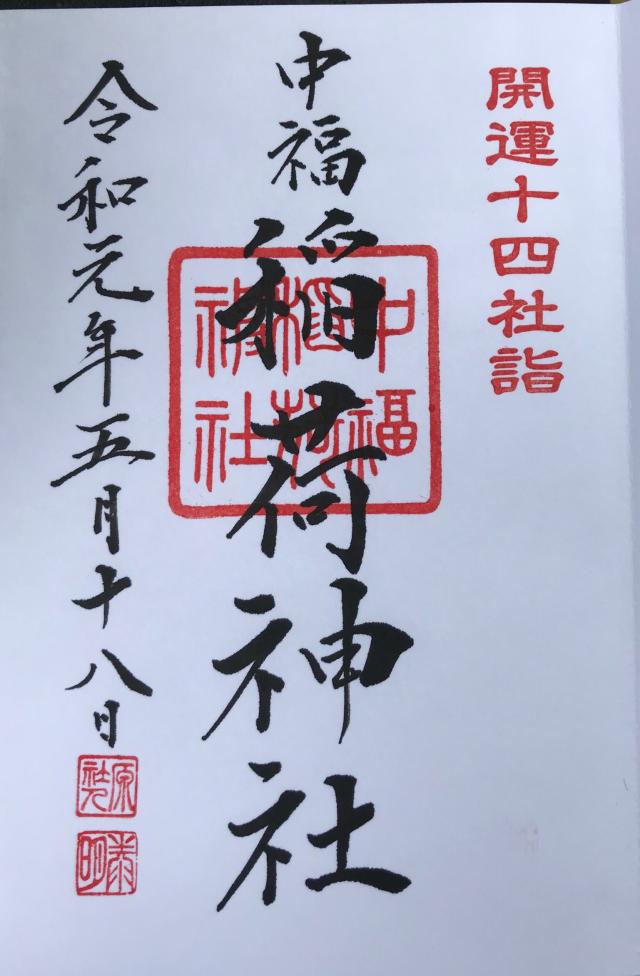 開運十四社詣
中福稲荷神社
中福稲荷神社
令和元年五月十八日